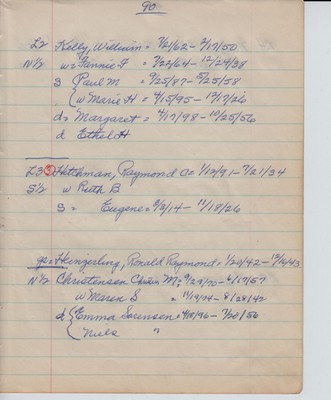 90
L2 Kelly, William = 7/2/62 - 2/17/50
N½ w = Fannie F = 7/22/64 - 12/24/38
S Paul M = 9/25/87 - 5/25/58
{ w Marie H = 4/15/95 - 12/17/26
d = Margaret = 4/17/98 - 10/25/56
d Ethel H
L3 3 Hitchman, Raymond C = 1/12/91 - 7/21/34
S½ w Ruth B
S = Eugene = 3/2/14 - 11/18/26
gs = Heingerling, Ronald Raymond = 1/20/42 - 12/16/43
N½ Christensen M = 9/29/70 - 6/19/57
w Maren S = 11/19/74 - 8/28/42
d { Emma Sorensen = 4/18/96 - 7/20/56
Niels "